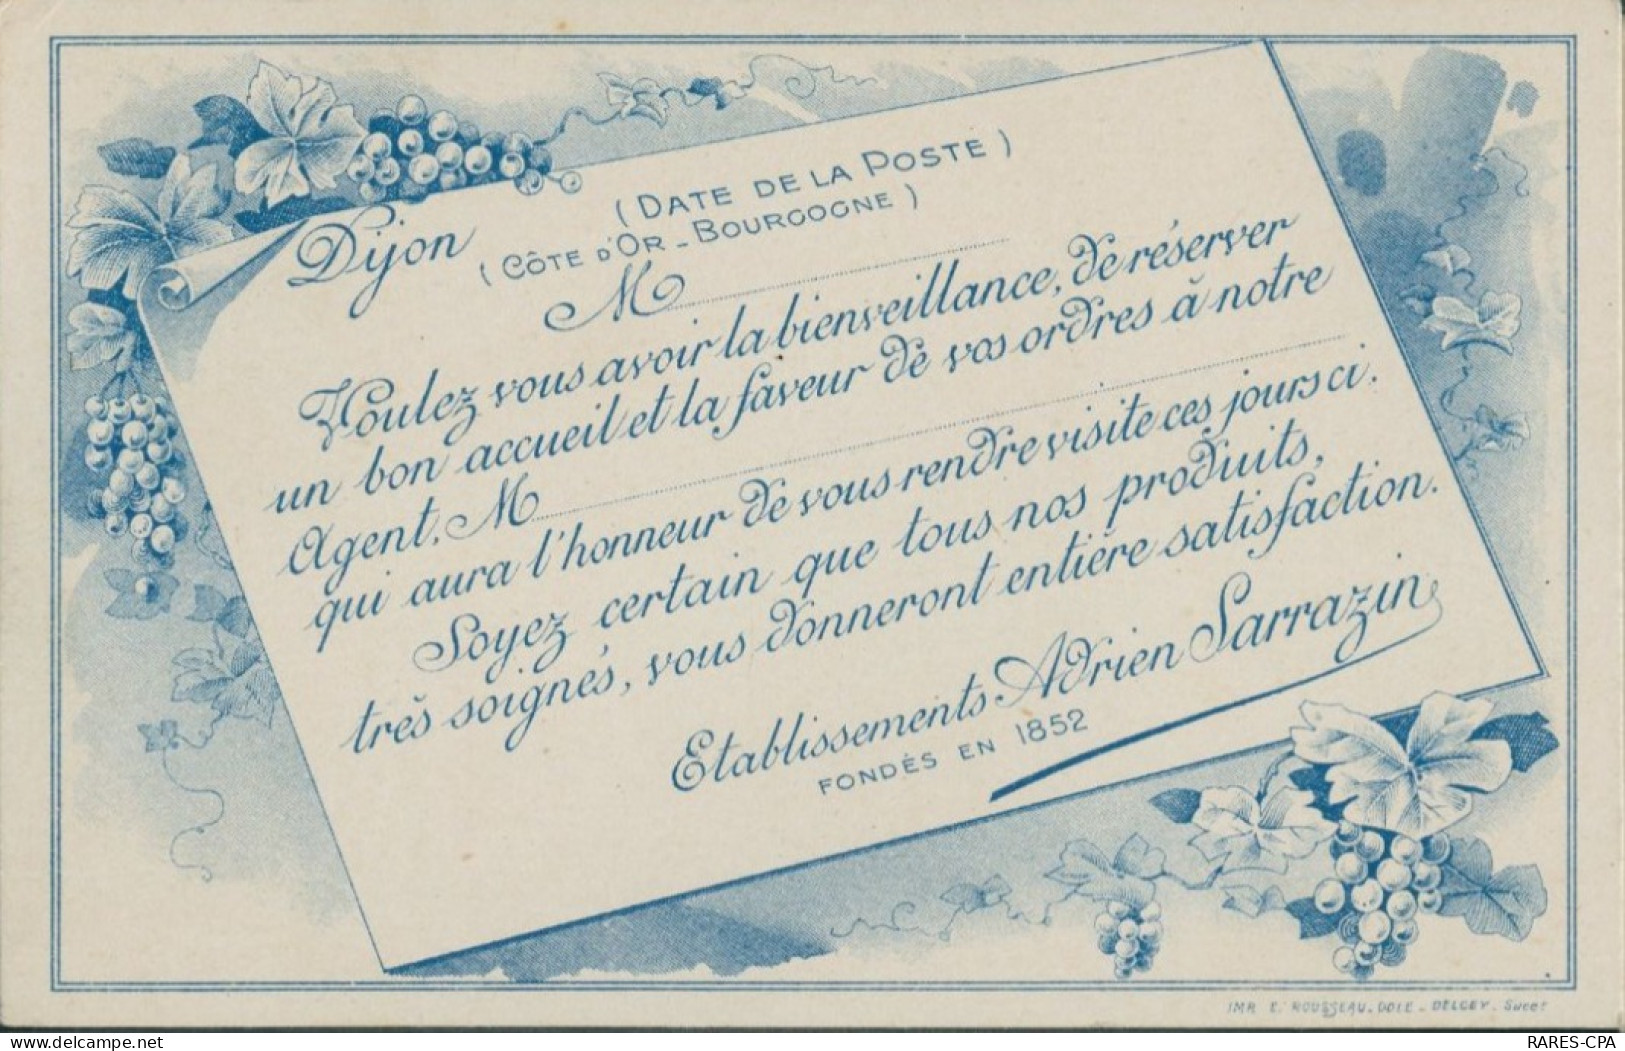 Dijon (DATE DE LA POSTE)
(CÔTE D'OR - BOURGOGNE)
M
Voulez vous avoir la bienveillance, de réserver
un bon accueil et la faveur de vos ordres à notre
Agent, M
qui aura l'honneur de vous rendre visite ces jours ci.
Soyez certain que tous nos produits,
très soignés, vous donneront entière satisfaction.
Etablissements Adrien Sarrazin
FONDÉS EN 1852
IMP. E. ROUSSEAU. DOLE - DELGEY. Succr
RARES-CPA